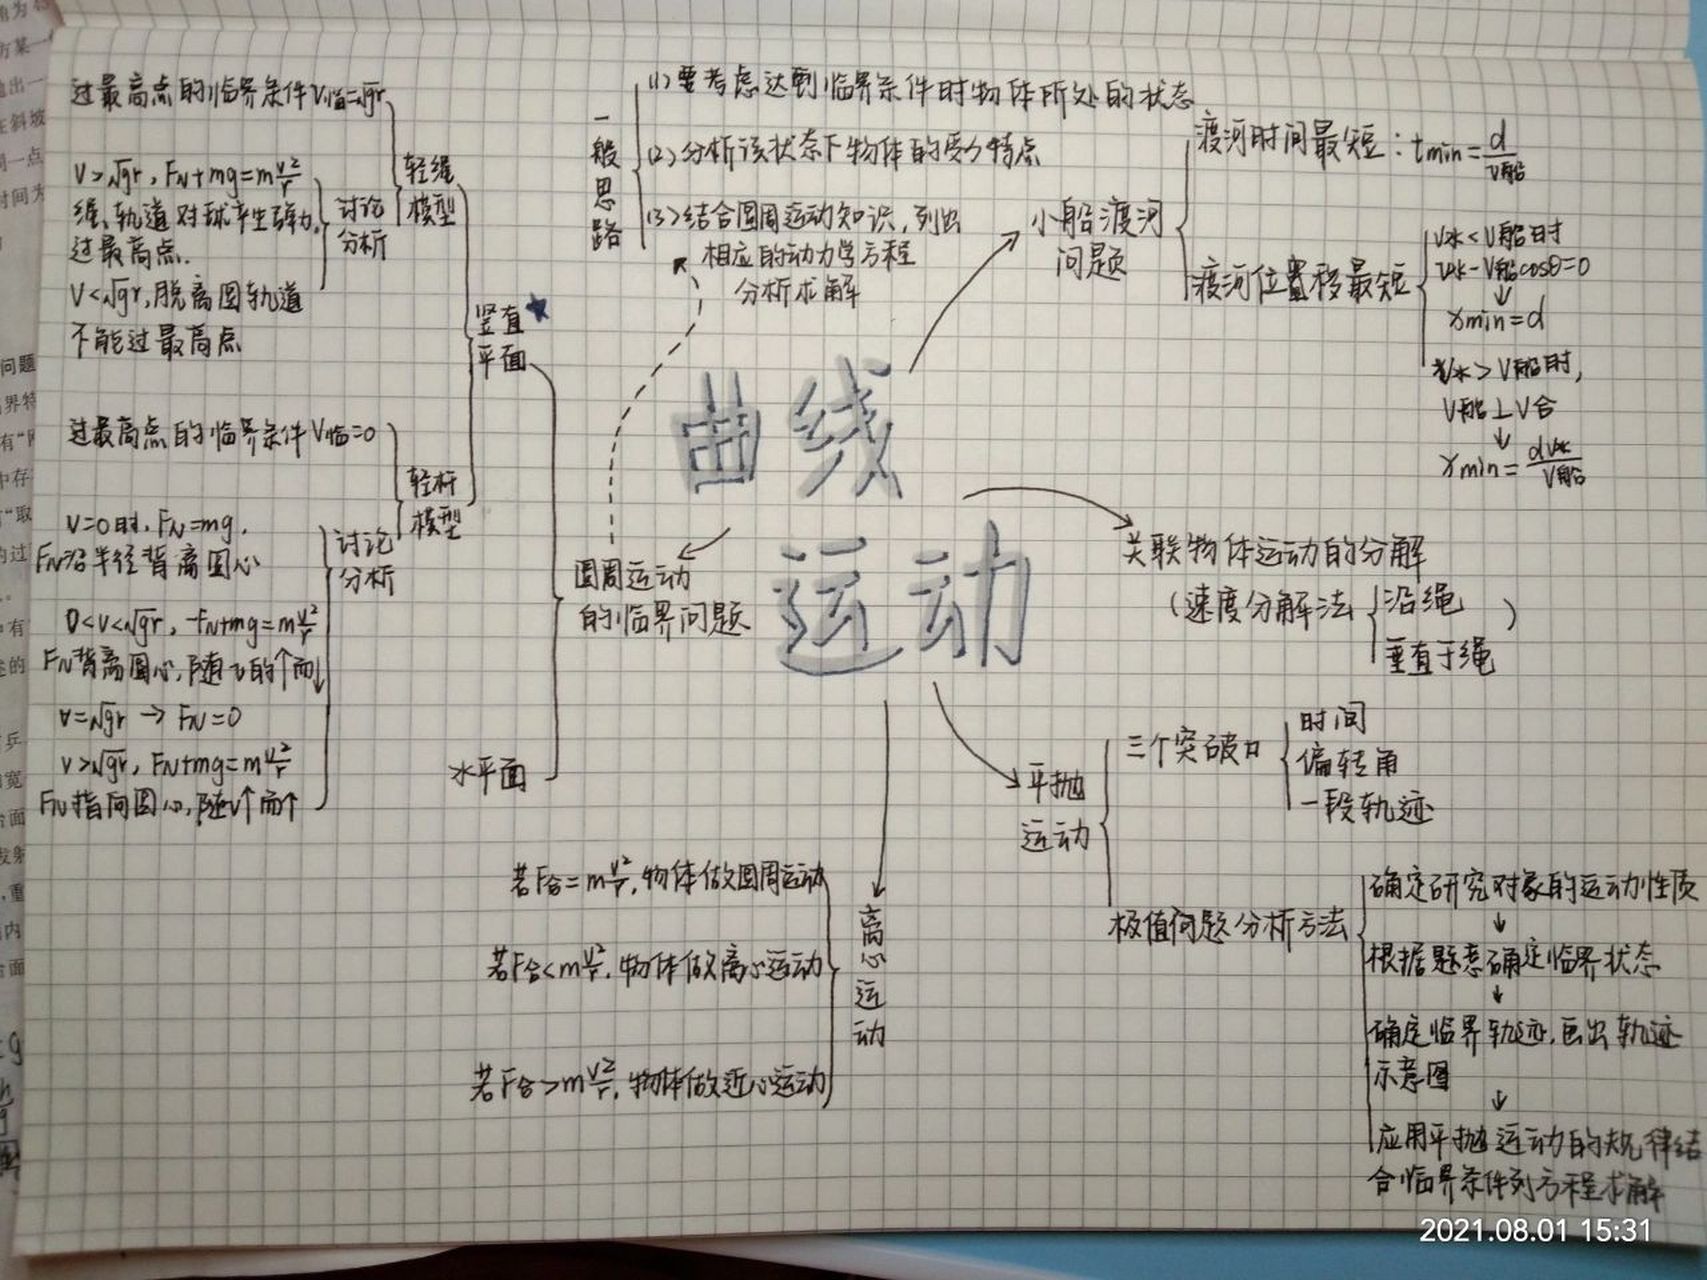 曲线
运动
小船渡河
问题
渡河时间最短：tmin=d/v船
渡河位置移最短
v水<v船时
v水-v船cosθ=0
↓
xmin=d
v水>v船时，
v船⊥v合
↓
xmin=dv水/v船
关联物体运动的分解
（速度分解法
沿绳
垂直于绳
）
平抛
运动
三个突破口
时间
偏转角
一段轨迹
极值问题分析方法
确定研究对象的运动性质
↓
根据题意确定临界状态
↓
确定临界轨迹，画出轨迹
示意图
↓
应用平抛运动的规律结
合临界条件列方程求解
离心运动
若F合=mv²/r，物体做圆周运动
若F合<mv²/r，物体做离心运动
若F合>mv²/r，物体做近心运动
圆周运动
的临界问题
一般思路
(1)要考虑达到临界条件时物体所处的状态
(2)分析该状态下物体的受力特点
(3)结合圆周运动知识，列出
相应的动力学方程
分析求解
竖直★
平面
轻绳
模型
过最高点的临界条件V临=√gr
讨论
分析
V>√gr，FN+mg=mv²/r
绳、轨道对球产生弹力，
过最高点.
V<√gr，脱离圆轨道
不能过最高点
轻杆
模型
过最高点的临界条件V临=0
讨论
分析
V=0时，FN=mg，
FN沿半径背离圆心
0<v<√gr，-FN+mg=mv²/r
FN背离圆心，随v的↑而↓
v=√gr → FN=0
v>√gr，FN+mg=mv²/r
FN指向圆心，随v↑而↑
水平面
2021.08.01 15:31